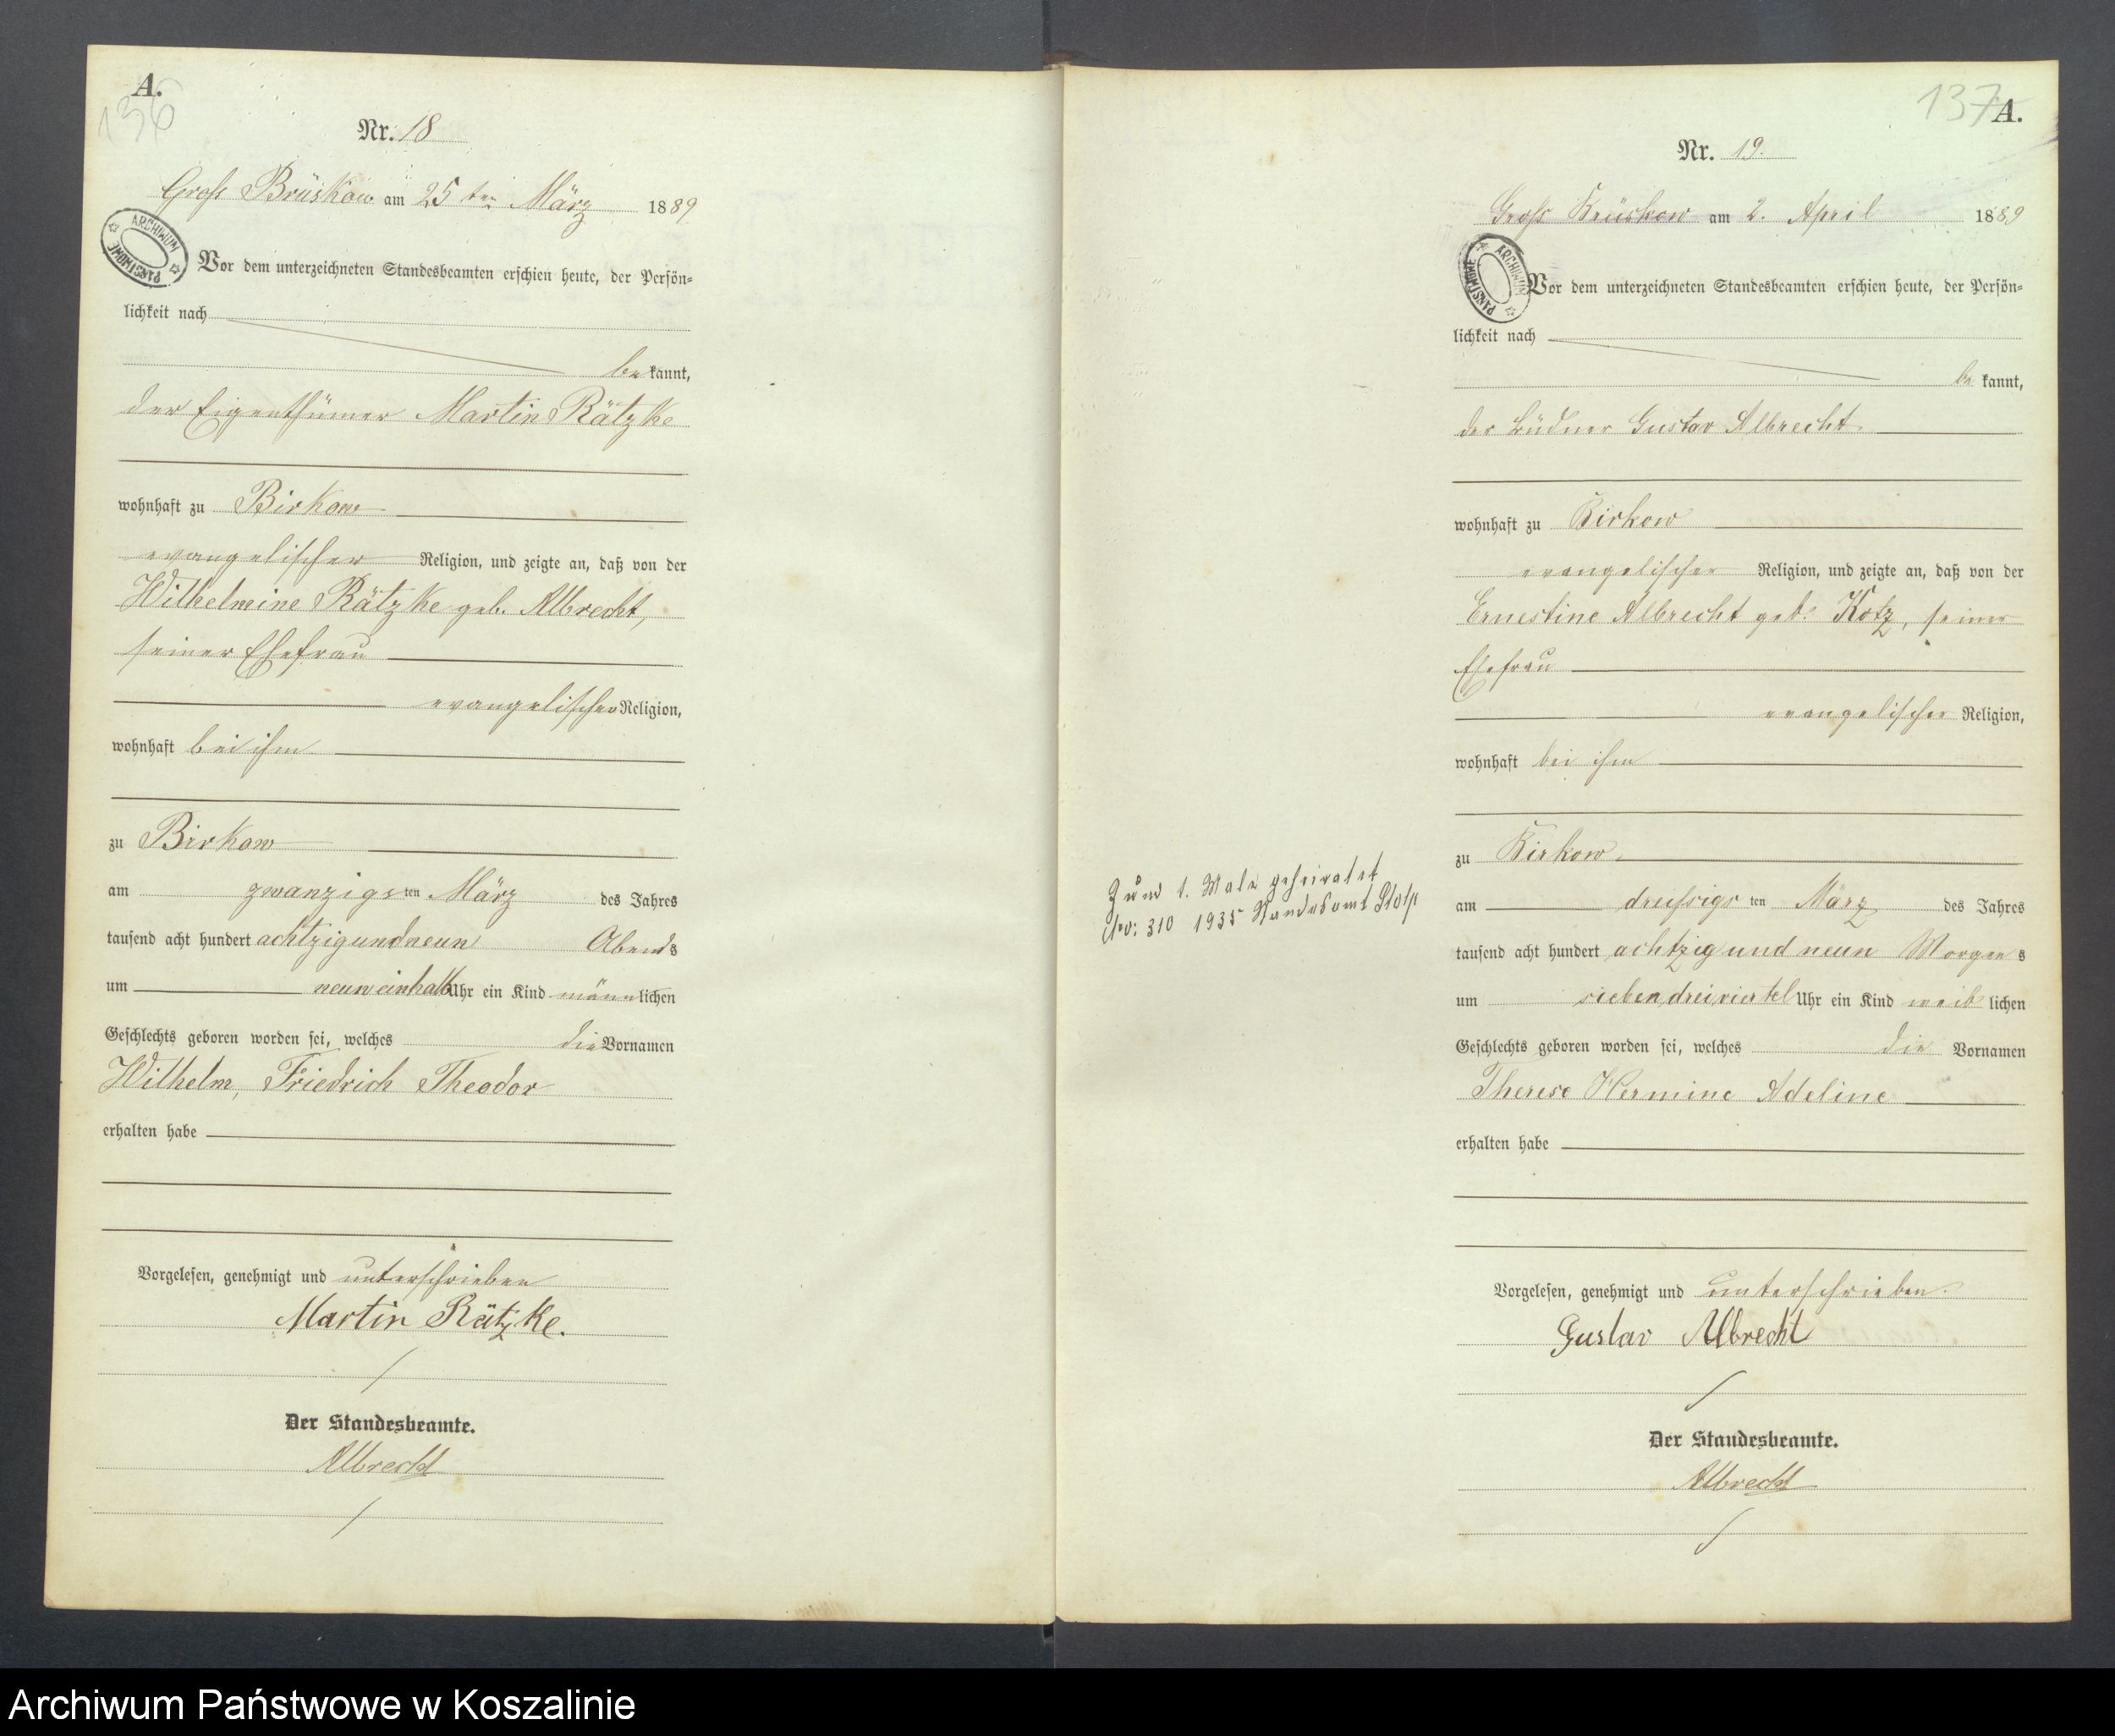 A.
136
Nr. 18
Groß Brüskow am 25 ten März 1889
ARCHIWUM PAŃSTWOWE
Vor dem unterzeichneten Standesbeamten erschien heute, der Persön-
lichkeit nach
bekannt,
der Eigenthümer Martin Rätzke
wohnhaft zu Birkow
evangelischer Religion, und zeigte an, daß von der
Wilhelmine Rätzke geb. Albrecht,
seiner Ehefrau
evangelischer Religion,
wohnhaft bei ihm
zu Birkow
am zwanzigsten März des Jahres
tausend acht hundert achtzigundneun Abends
um neuneinhalb Uhr ein Kind männlichen
Geschlechts geboren worden sei, welches die Vornamen
Wilhelm, Friedrich Theodor
erhalten habe
Vorgelesen, genehmigt und unterschrieben
Martin Rätzke.
Der Standesbeamte.
Albrecht
137 A.
Nr. 19.
Groß Brüskow am 2. April 1889
ARCHIWUM PAŃSTWOWE
Vor dem unterzeichneten Standesbeamten erschien heute, der Persön-
lichkeit nach
bekannt,
der Büdner Gustav Albrecht
wohnhaft zu Birkow
evangelischer Religion, und zeigte an, daß von der
Ernestine Albrecht geb. Kotz, seiner
Ehefrau
evangelischer Religion,
wohnhaft bei ihm
zu Birkow
am dreißigsten März des Jahres
tausend acht hundert achtzig und neun Morgens
um siebendreiviertel Uhr ein Kind weiblichen
Geschlechts geboren worden sei, welches die Vornamen
Therese Hermine Adeline
erhalten habe
Zum 1. Male geheiratet
Nr: 310 1935 Standesamt Stolp
Vorgelesen, genehmigt und unterschrieben.
Gustav Albrecht
Der Standesbeamte.
Albrecht
Archiwum Państwowe w Koszalinie